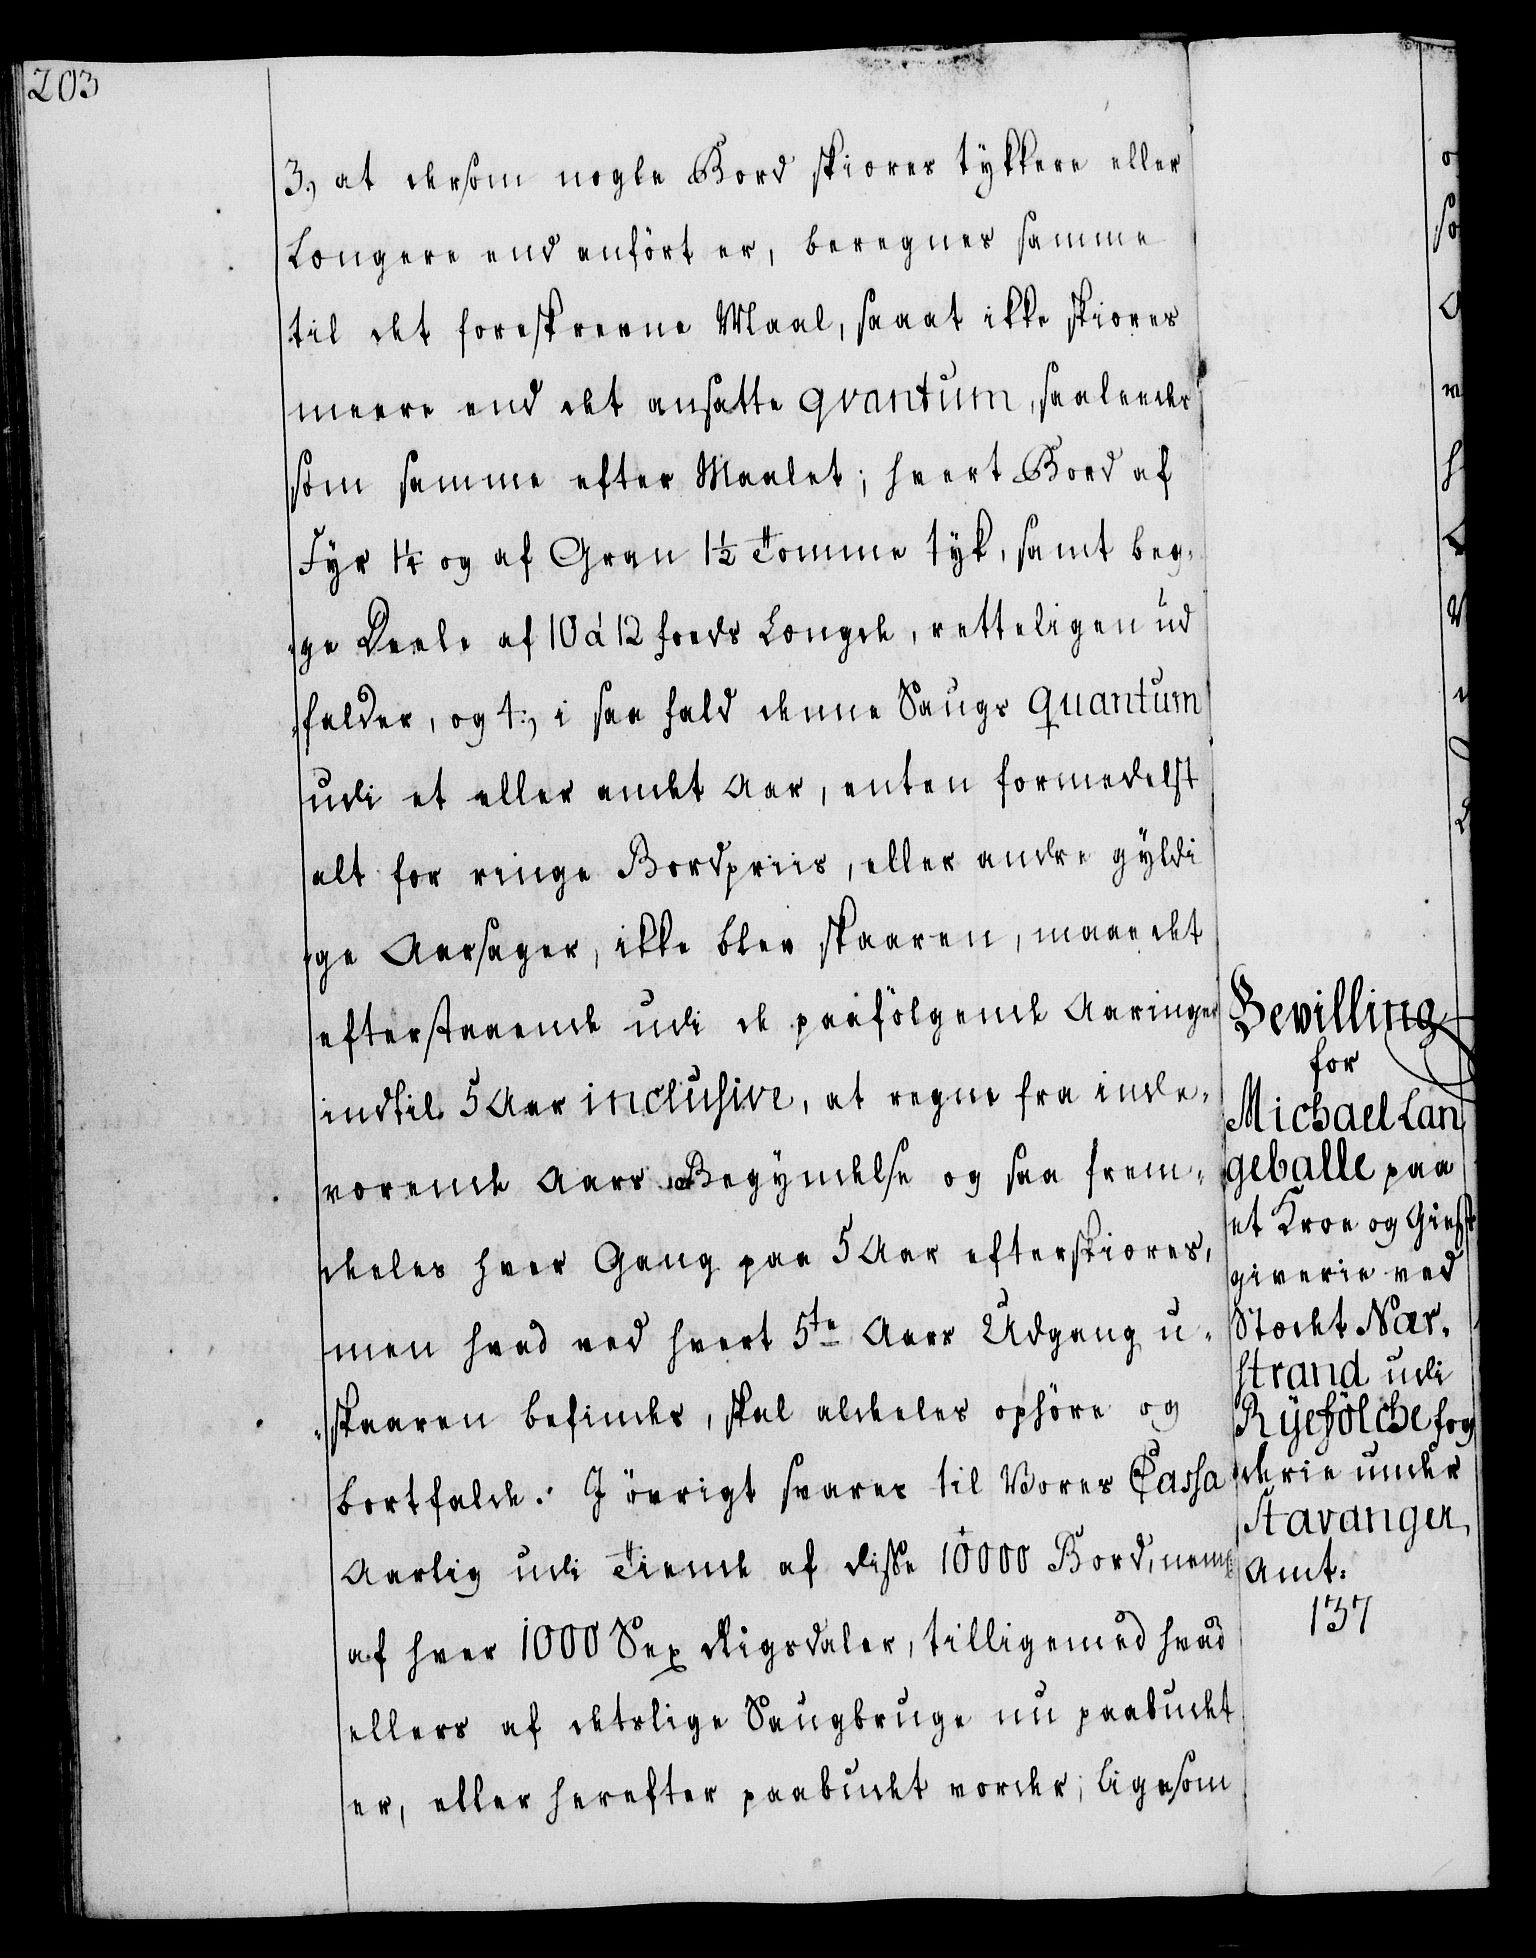 203
3, at dersom nogle Bord skiæres tykkere eller
Længere end anført er, beregnes samme
til det foreskrevne Maal, saaat ikke skiæres
meere end det ansatte qvantum, saaleedes
som samme efter Maalet; hvert Bord af
Fyr 1¼ og af Gran 1½ Tomme tyk, samt beg-
-ge Deele af 10 à 12 foeds Længde, retteligen ud
-falder, og 4:, i saa fald denne Saugs quantum
udi et eller andet Aar, enten formedelst
alt for ringe Bordpriis, eller andre gyldi
-ge Aarsager, ikke blev skaaren, maae det
efterstaaende udi de paafølgende Aaringer
indtil 5 Aar inclusive, at regne fra inde-
værende Aars Begyndelse og saa frem-
deeles hver Gang paa 5 Aar efterskiæres,
men hvad ved hvert 5te Aars Udgang u-
-skaaren befindes, skal aldeeles ophøre og
bortfalde. J øvrigt svares til Vores Cassa
Aarlig udi Tiende af disse 10000 Bord, neml:
af hver 1000 Sex Rigsdaler, tilligemed hvad
ellers af detslige Saugbruge nu paabudet
er, eller herefter paabudet vorder; ligesom
Bevilling
for
Michael Lan
geballe paa
et Kroe og Giest
giverie ved
Stædet Nar-
strand udi
Ryefölche fog
derie under
Stavanger
Amt.
137